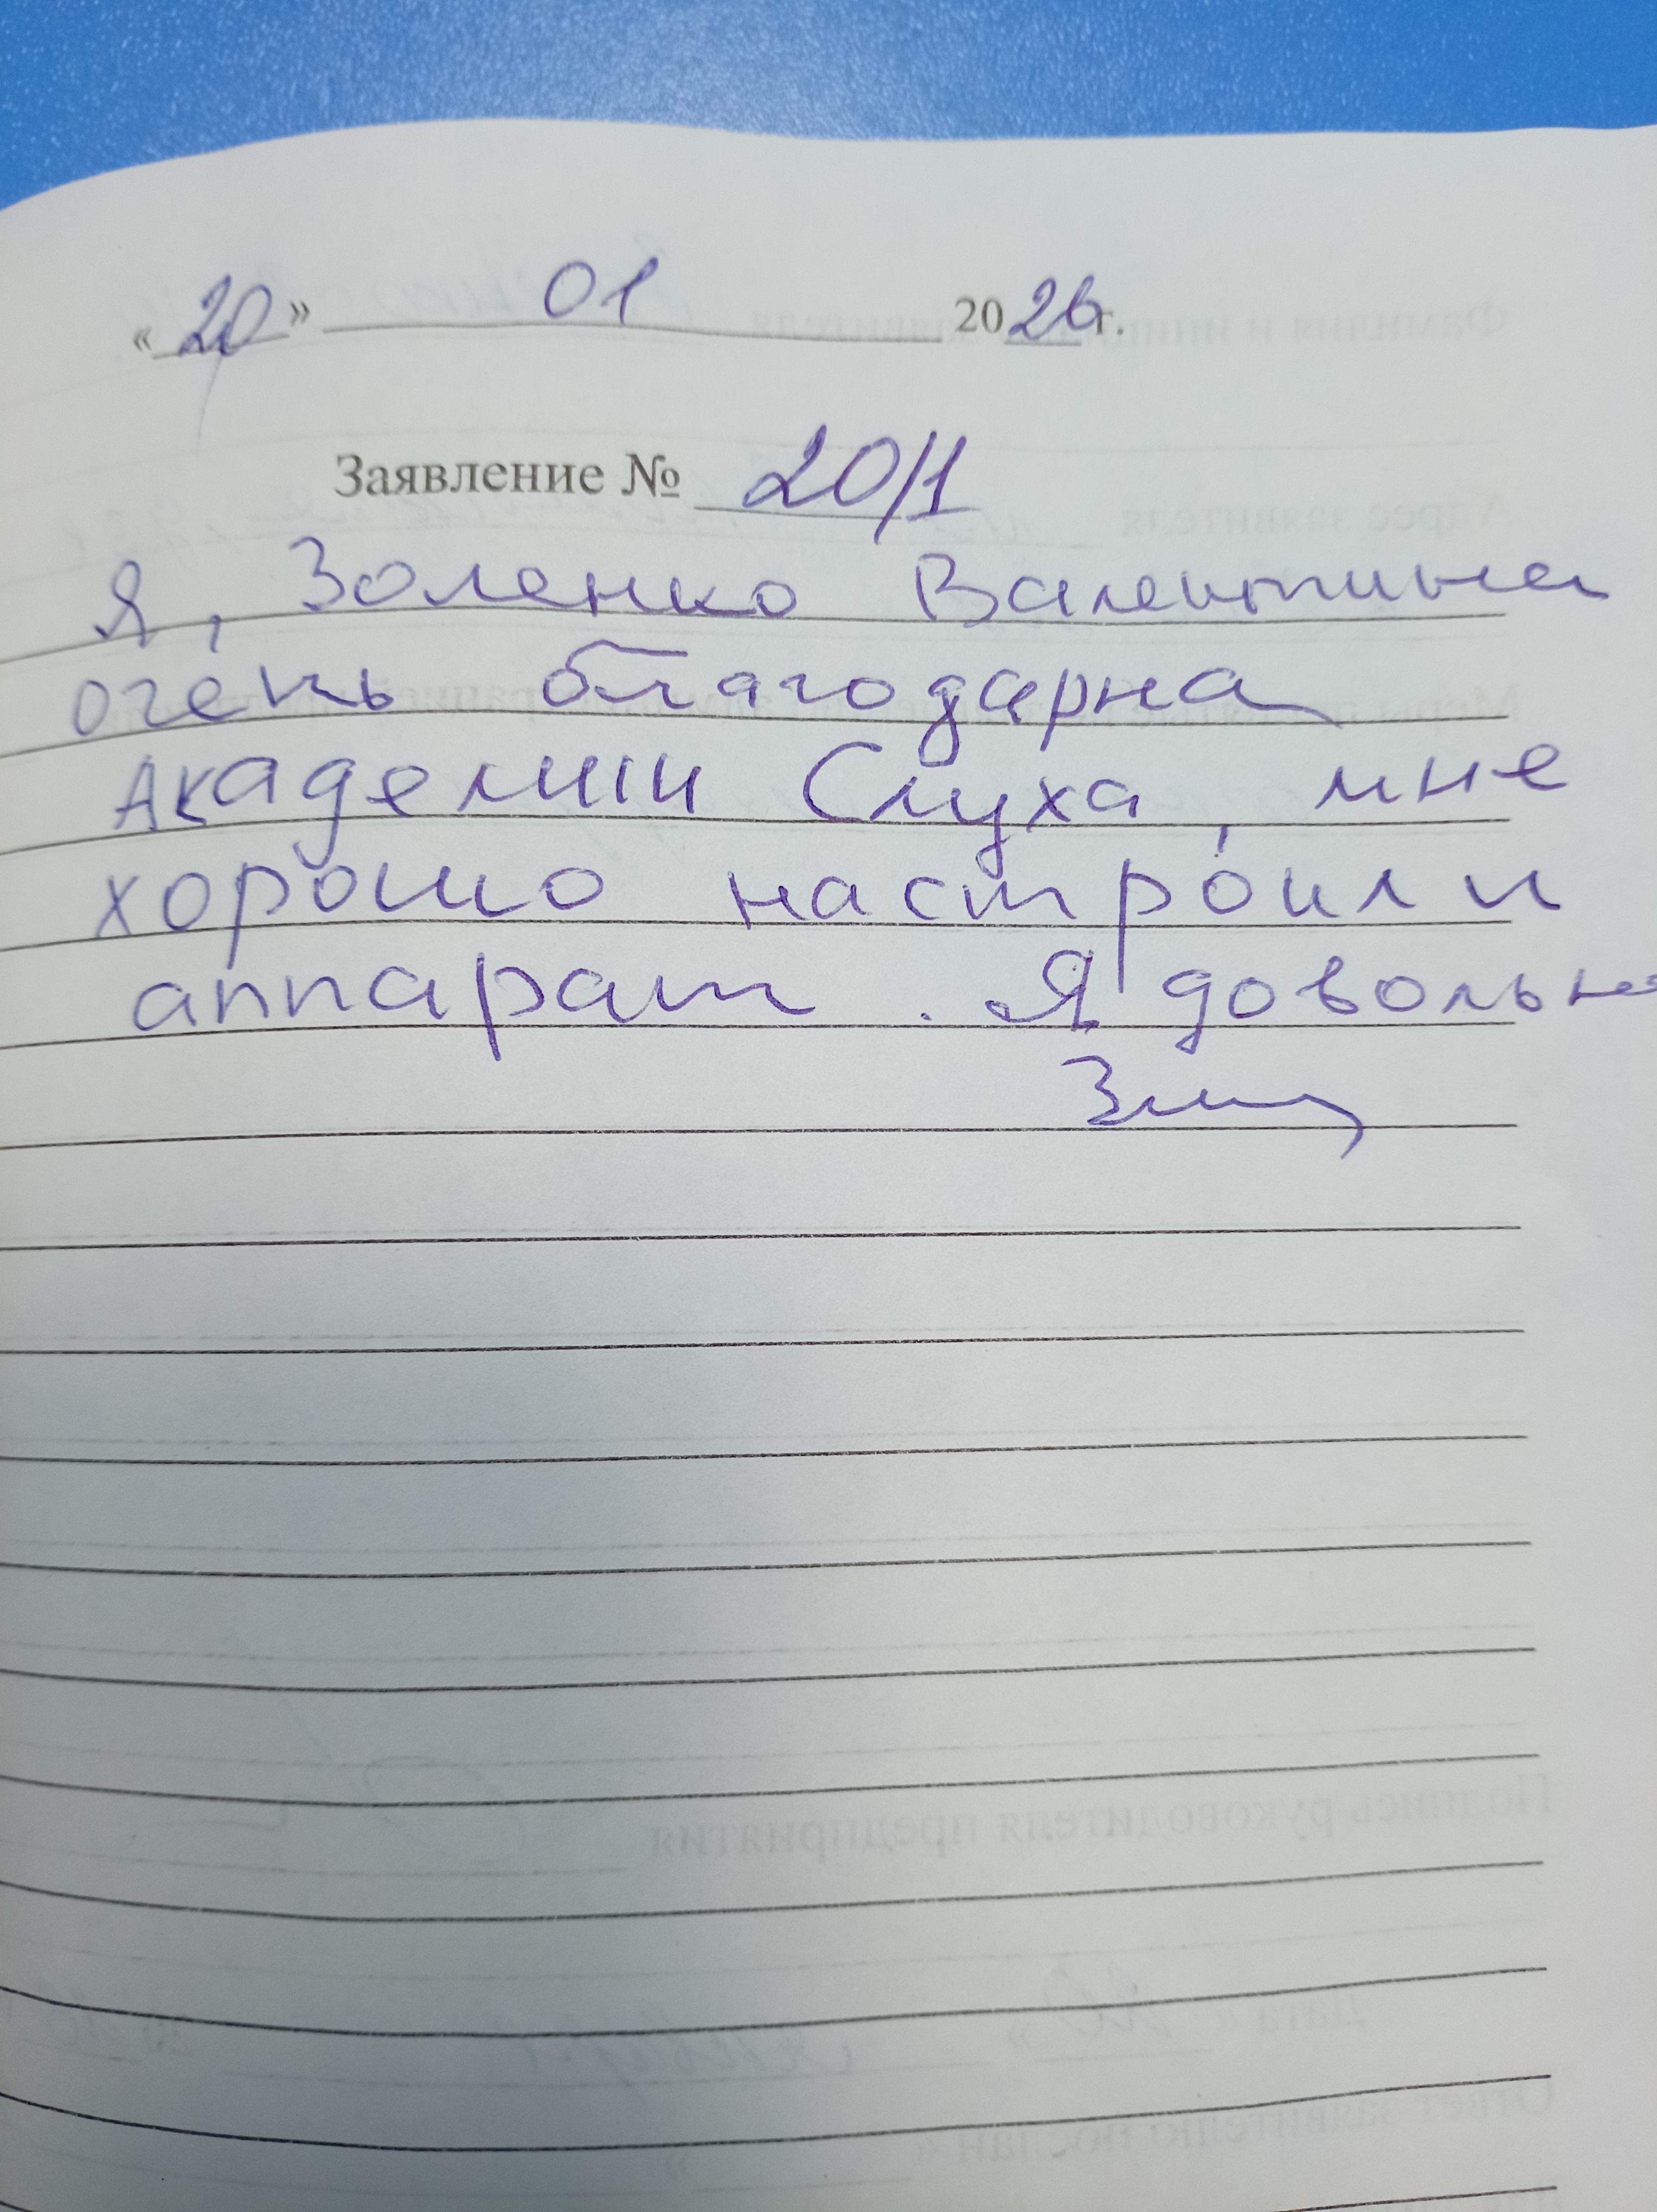 «20» 01 2026г.
Заявление № 20/1
Я, Золенко Валентина
очень благодарна
Академии Слуха, мне
хорошо настроили
аппарат. Я довольна